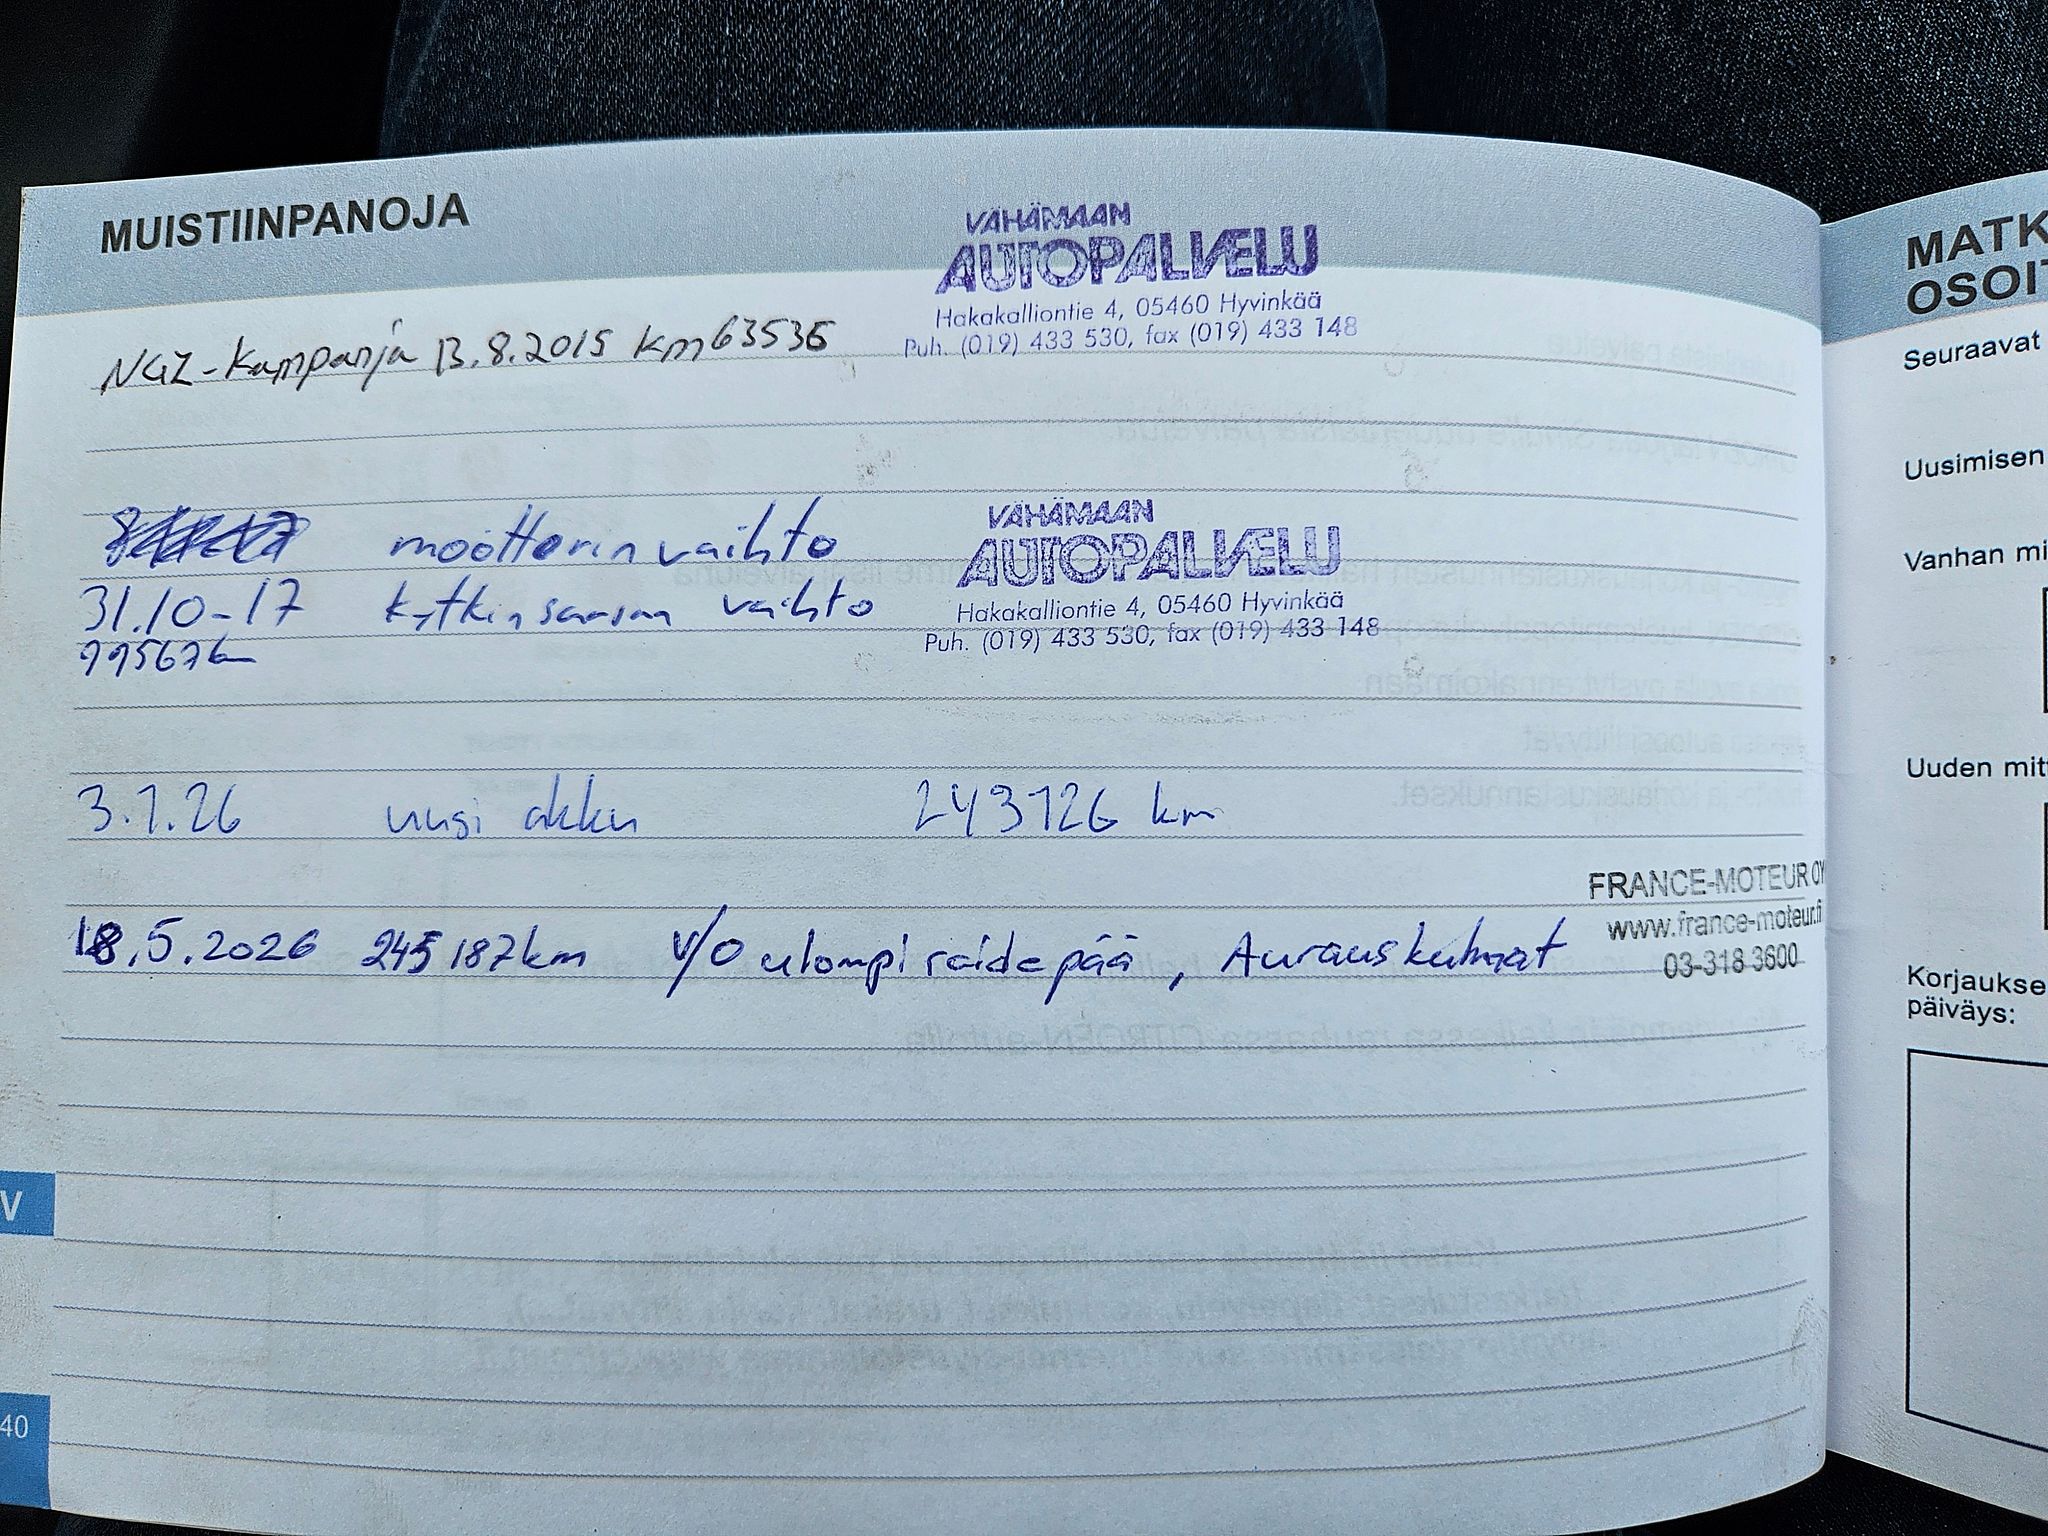 MUISTIINPANOJA
VÄHÄMAAN
AUTOPALVELU
Hakakalliontie 4, 05460 Hyvinkää
Puh. (019) 433 530, fax (019) 433 148
NGZ-Kampanja 13.8.2015 km 63535
moottorin vaihto
VÄHÄMAAN
AUTOPALVELU
Hakakalliontie 4, 05460 Hyvinkää
Puh. (019) 433 530, fax (019) 433 148
31.10-17 kytkinsarjan vaihto
99567km
3.1.26 uusi akku 243126 km
FRANCE-MOTEUR OY
www.france-moteur.fi
03-318 3600
18.5.2026 245187km v/o ulompi raidepää, Aurauskulmat
V
40
MATK
OSOIT
Seuraavat
Uusimisen
Vanhan mi
Uuden mitt
Korjaukse
päiväys: